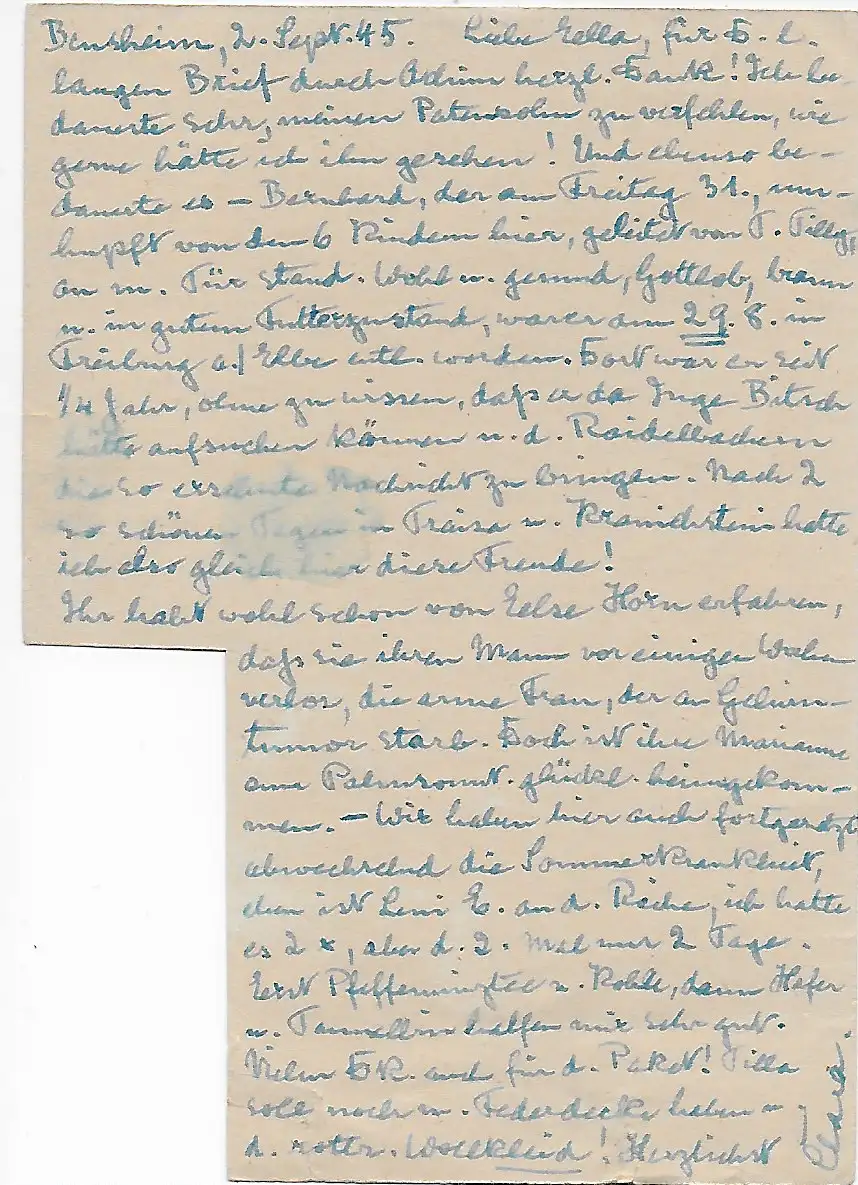 Bensheim, 2. Sept. 45. Liebe Ella, für D. l.
langen Brief durch Achim herzl. Dank! Ich be-
dauerte sehr, meinen Patensohn zu verfehlen, wie
gerne hätte ich ihn gesehen! Und ebenso be-
dauerte es – Bernhard, der am Freitag 31., um-
hüpft von den 6 Kindern hier, geleitet von T. Tilly,
an m. Tür stand. Wohl u. gesund, Gottlob, braun
u. in gutem Futterzustand, war er am 29. 8. in
Freiburg a./Elbe entl. worden. Dort war er seit
1/4 Jahr, ohne zu wissen, daß er da Inge Bitsch
hätte aufsuchen können u. d. Raidelbachern
die so ersehnte Nachricht zu bringen. Nach 2
so schönen Tagen in Traisa u. Kranichstein hatte
ich also gleich hier diese Freude!
Ihr habt wohl schon von Else Horn erfahren,
daß sie ihren Mann vor einigen Wochen
verlor, die arme Frau, der an Gehirn-
tumor starb. Doch ist ihre Marianne
am Palmsonnt. glückl. heimgekom-
men. – Wir haben hier auch fortgesetzt
abwechselnd die Sommerkrankheit,
eben ist Leni E. an d. Reihe, ich hatte
es 2 x, aber d. 2. Mal nur 2 Tage.
Erst Pfefferminztee u. Kohle, dann Hafer
u. Tannalbin halfen mir sehr gut.
Vielen Dk. auch für d. Paket! Tilla
soll noch m. Federdecke haben u.
d. roten Wollkleid! Herzlichst